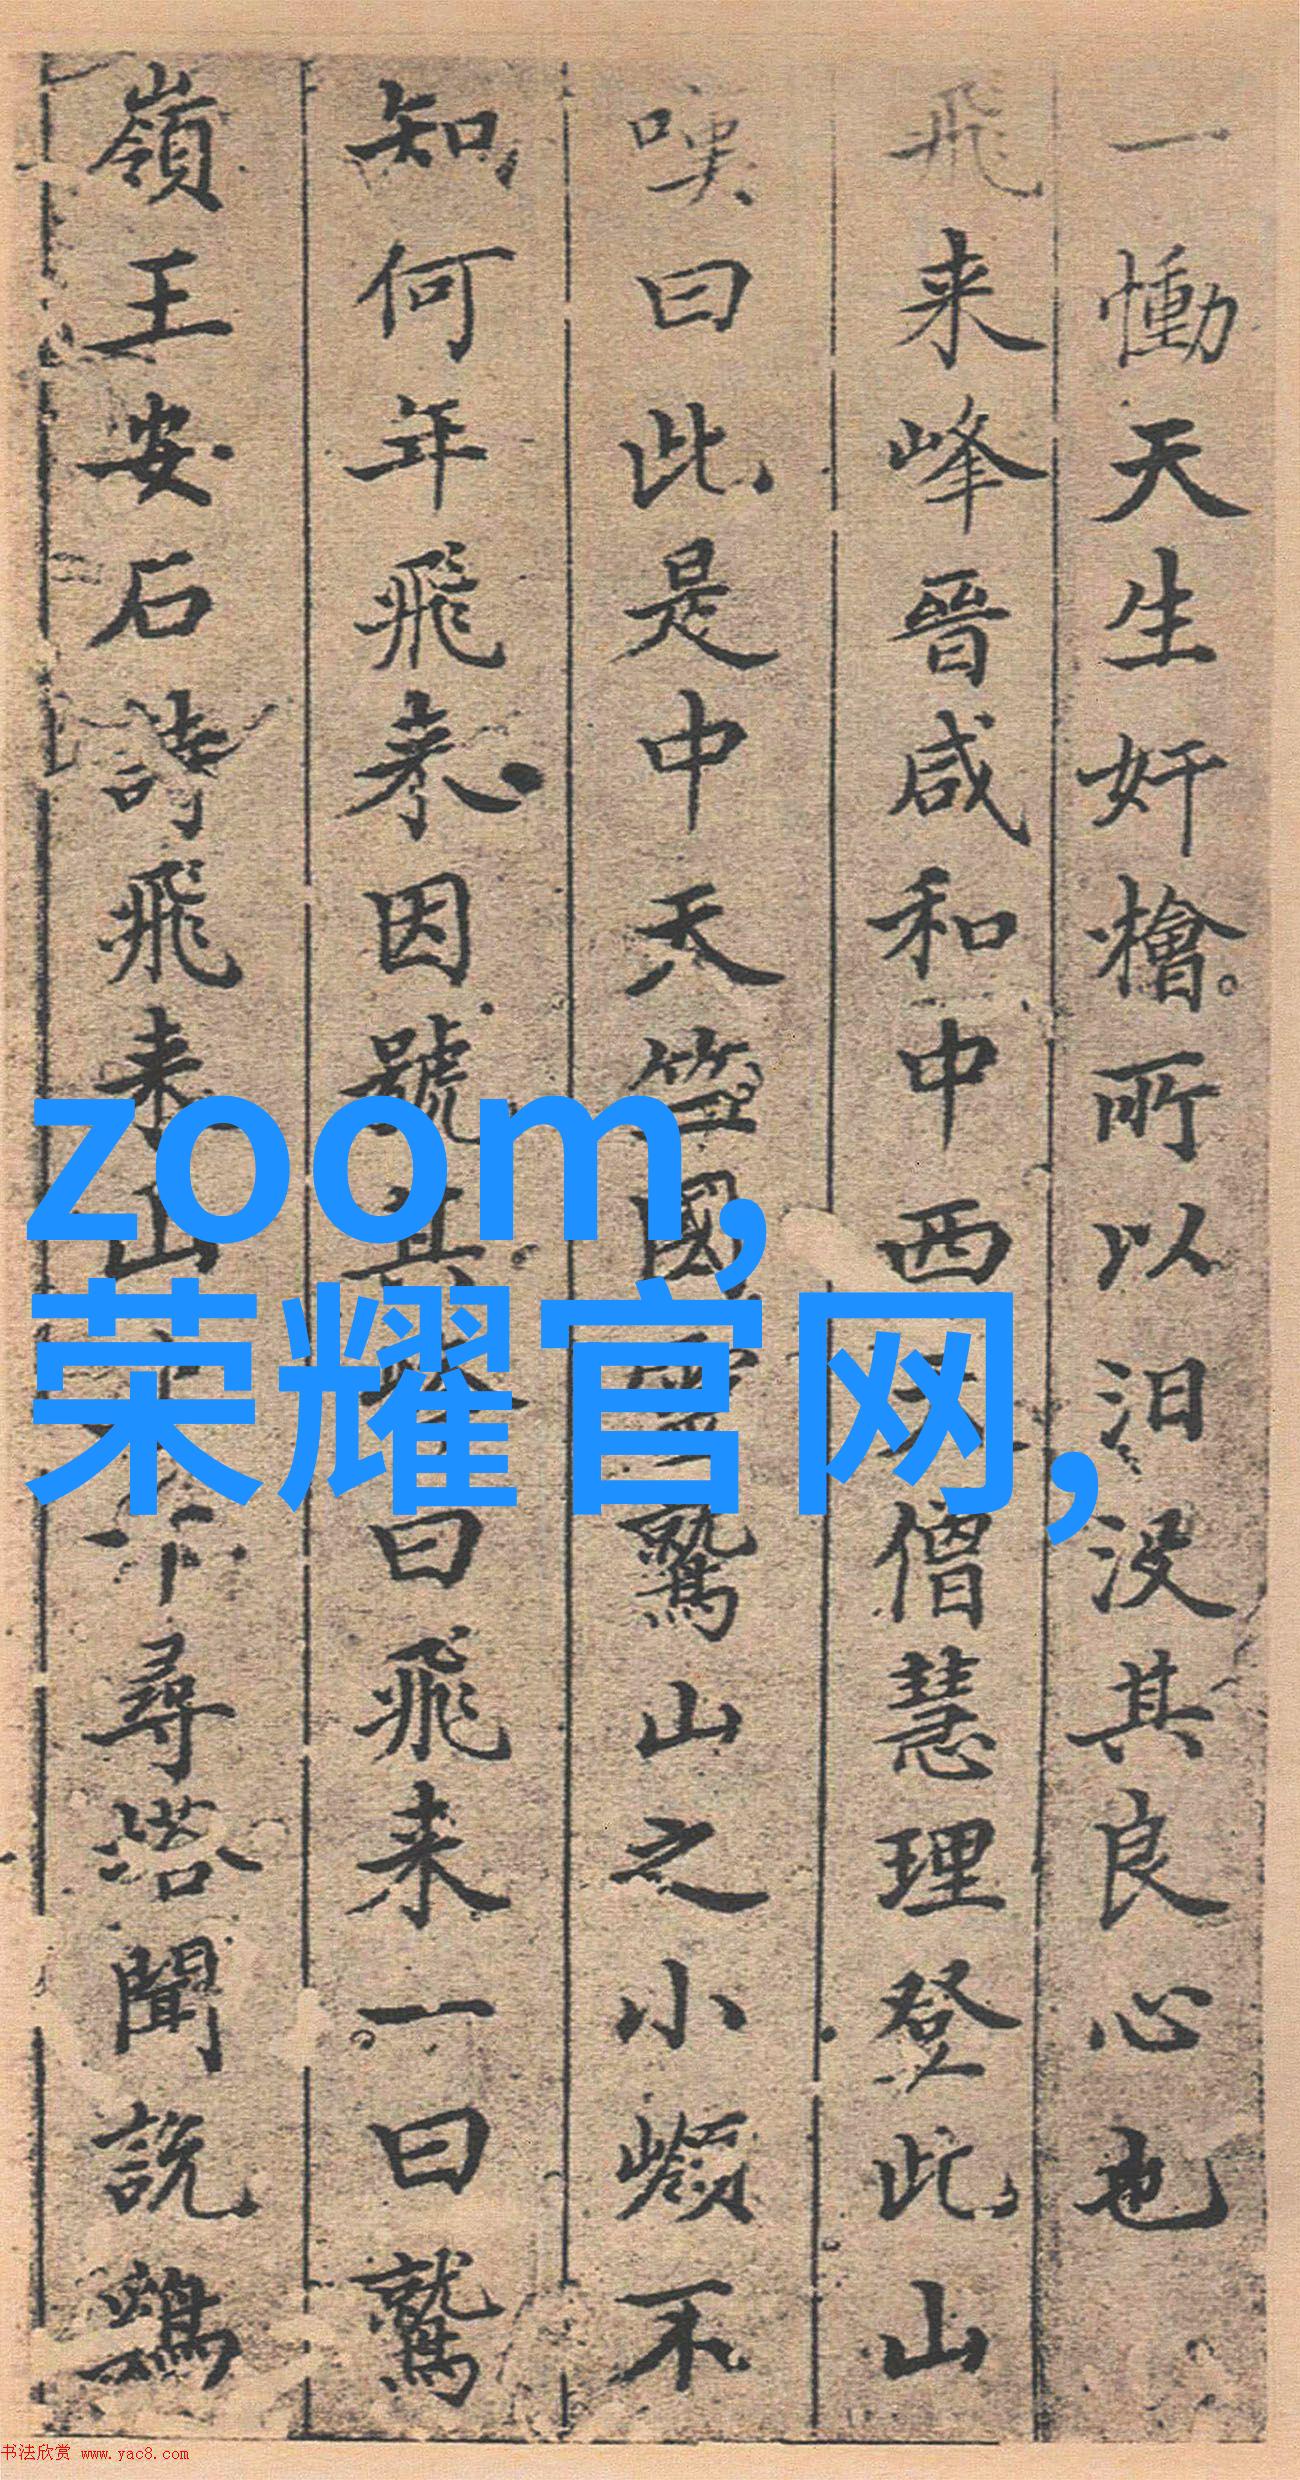 一慟天生奸檜所以汨没其良心也
飛来峰晉咸和中西天僧慧理登此山
嘆曰此是中天竺國靈鷲山之小嶺不
知何年飛来因號其曰飛来一曰鷲
嶺王安石詩飛来山千尋塔聞說鷄
zoom,
荣耀官网,
书法欣赏 www.yac8.com